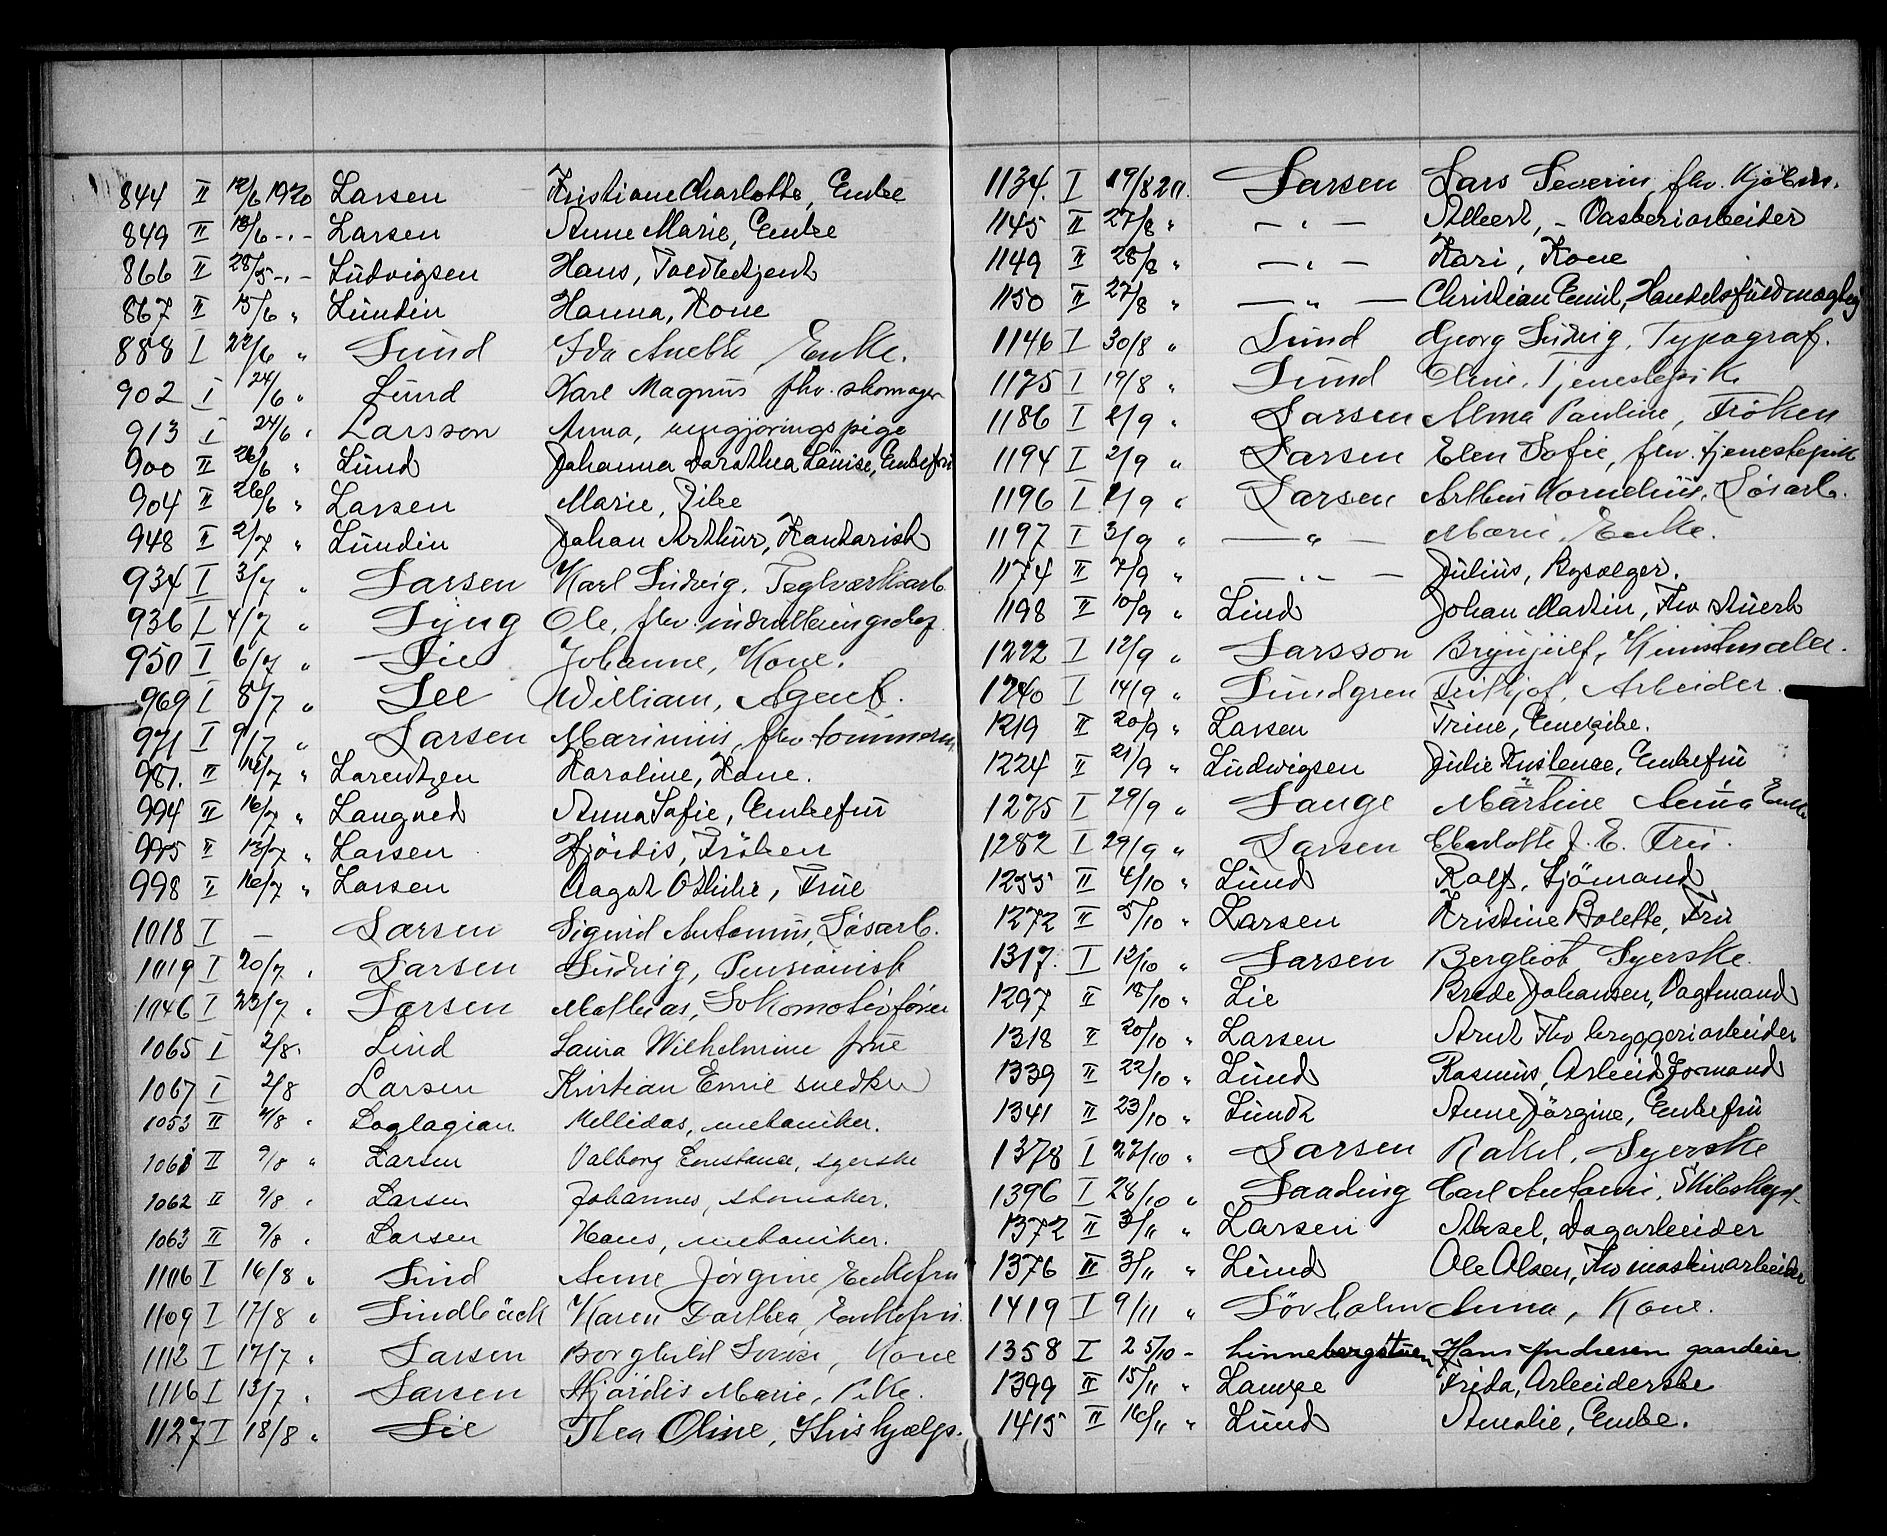 844 II 12/6 1920 Larsen Kristiane Charlotte, Enke
849 II 18/6 -„- Larsen Anne Marie, Enke
866 II 28/5 -„- Ludvigsen Hans, Toldbetjent
867 II 15/6 „ Lundin Hanna, Kone
888 I 22/6 „ Lund Ida Anette Enke.
902 I 24/6 „ Lund Karl Magnus fhv. skomager
913 I 24/6 „ Larsson Anna, rengjøringspige
900 II 26/6 „ Lund Johanna Dorathea Louise, Enkefru
904 II 26/6 „ Larsen Marie, Pike
948 II 2/7 „ Lundin Johan Arthur, Kontorist
934 I 3/7 „ Larsen Karl Ludvig, Teglverksarb.
936 I 4/7 „ Lyng Ole, fhv.
950 I 6/7 „ Lie Johanne, Kone.
969 I 8/7 „ Lee William, Agent.
971 I 9/7 „ Larsen Marinius, fhv tømmerm.
981. II 14/7 „ Lorentzen Karoline, Kone.
994 II 16/7 „ Langved Anna Sofie, Enkefru
995 II 13/7 „ Larsen Hjördis, Fröken
998 II 16/7 „ Larsen Aagot Othilie, Frue
1018 I — Larsen Sigurd Antonius, Løsarb.
1019 I 20/7 „ Larsen Ludvig, Pensionist
1046 I 23/7 „ Larsen Mathias, Lokomotivfører
1065 I 2/8 „ Lind Laura Wilhelmine frue
1067 I 2/8 Larsen Kristian Emil snedker
1053 II 4/8 „ Loglagian Mellidas, mekaniker.
1061 II 9/8 „ Larsen Valborg Constance, syerske
1062 II 9/8 „ Larsen Johannes, skomaker.
1063 II 9/8 „ Larsen Hans, mekaniker.
1106 I 16/8 „ Lind Anne Jørgine, Enkefru
1109 I 17/8 „ Lindbäck Karen Dorthea, Enkefru.
1112 I 17/7 „ Larsen Borghild Lovise, Kone
1116 I 13/7 „ Larsen Hjørdis Marie, Pike.
1127 I 18/8 „ Lie Thea Oline, Hushjælps.
1134. I 19/8 20. Larsen Lars Severin, fhv. Kjøbm.
1145 II 27/8 „ — „ — Albert, - Vaskeriarbeider
1149 II 28/8 „ — „ — Kari, Kone
1150 II 27/8 „ — „ — Christian Emil, Handelsfuldmægtig
1146 I 30/8 „ Lund Georg Ludvig, Typograf.
1175 I 19/8 „ Lund Eline, Tjenestepik
1186 I 2/9 „ Larsen Alma Pauline, Frøken
1194 I 2/9 „ Larsen Elen Sofie, fhv. tjenestepik
1196 I 2/9 „ Larsen Arthur Kornelius, Løsarb.
1197 I 3/9 „ — „ — Maren, Enke.
1174 II 7/9 „ — „ — Julius, Bysælger.
1198 II 10/9 „ Lind Johan Martin, Fhv stuert
1222 I 12/9 „ Larsson Brynjulf, Kunstmaler.
1240 I 14/9 „ Lundgren Fritjof, Arbeider.
1219 II 20/9 „ Larsen Trine, Enepike.
1224 II 21/9 „ Ludwigsen Julie Kristense, Enkefru
1275 I 29/9 „ Lange Martine Anna Enke
1282 I 29/9 „ Larsen Charlotte J. E. Fru.
1255 II 4/10 „ Lund Rolf, Sjömand
1272 II 5/10 „ Larsen Kristine Bolette, Fru
1317. I 12/10 „ Larsen Bergliot Syerske.
1297 II 18/10 „ Lie Brede Johansen, Vagtmand
1318 II 20/10 „ Larsen Arnt Fhv bryggeriarbeider
1339 II 22/10 „ Lund Rasmus, Arbeidsformand
1341 II 23/10 „ Lundh Anne Jörgine, Enkefru
1378 I 27/10 „ Larsen Rakel, Syerske
1396 I 28/10 „ Laading Carl Antoni, Skibskapt.
1372 II 3/11 „ Larsen Aksel, Dagarbeider
1376 II 3/11 „ Lund Ole Olsen, Fhv maskinarbeider
1419 I 9/11 „ Lövholm Anna, Kone.
1358 I 25/10 - Linnebergstuen Hans Andresen gaardeier
1399 II 15/11 „ Lange Frida, Arbeiderske
1415 II 16/11 „ Lund Amalie, Enke.